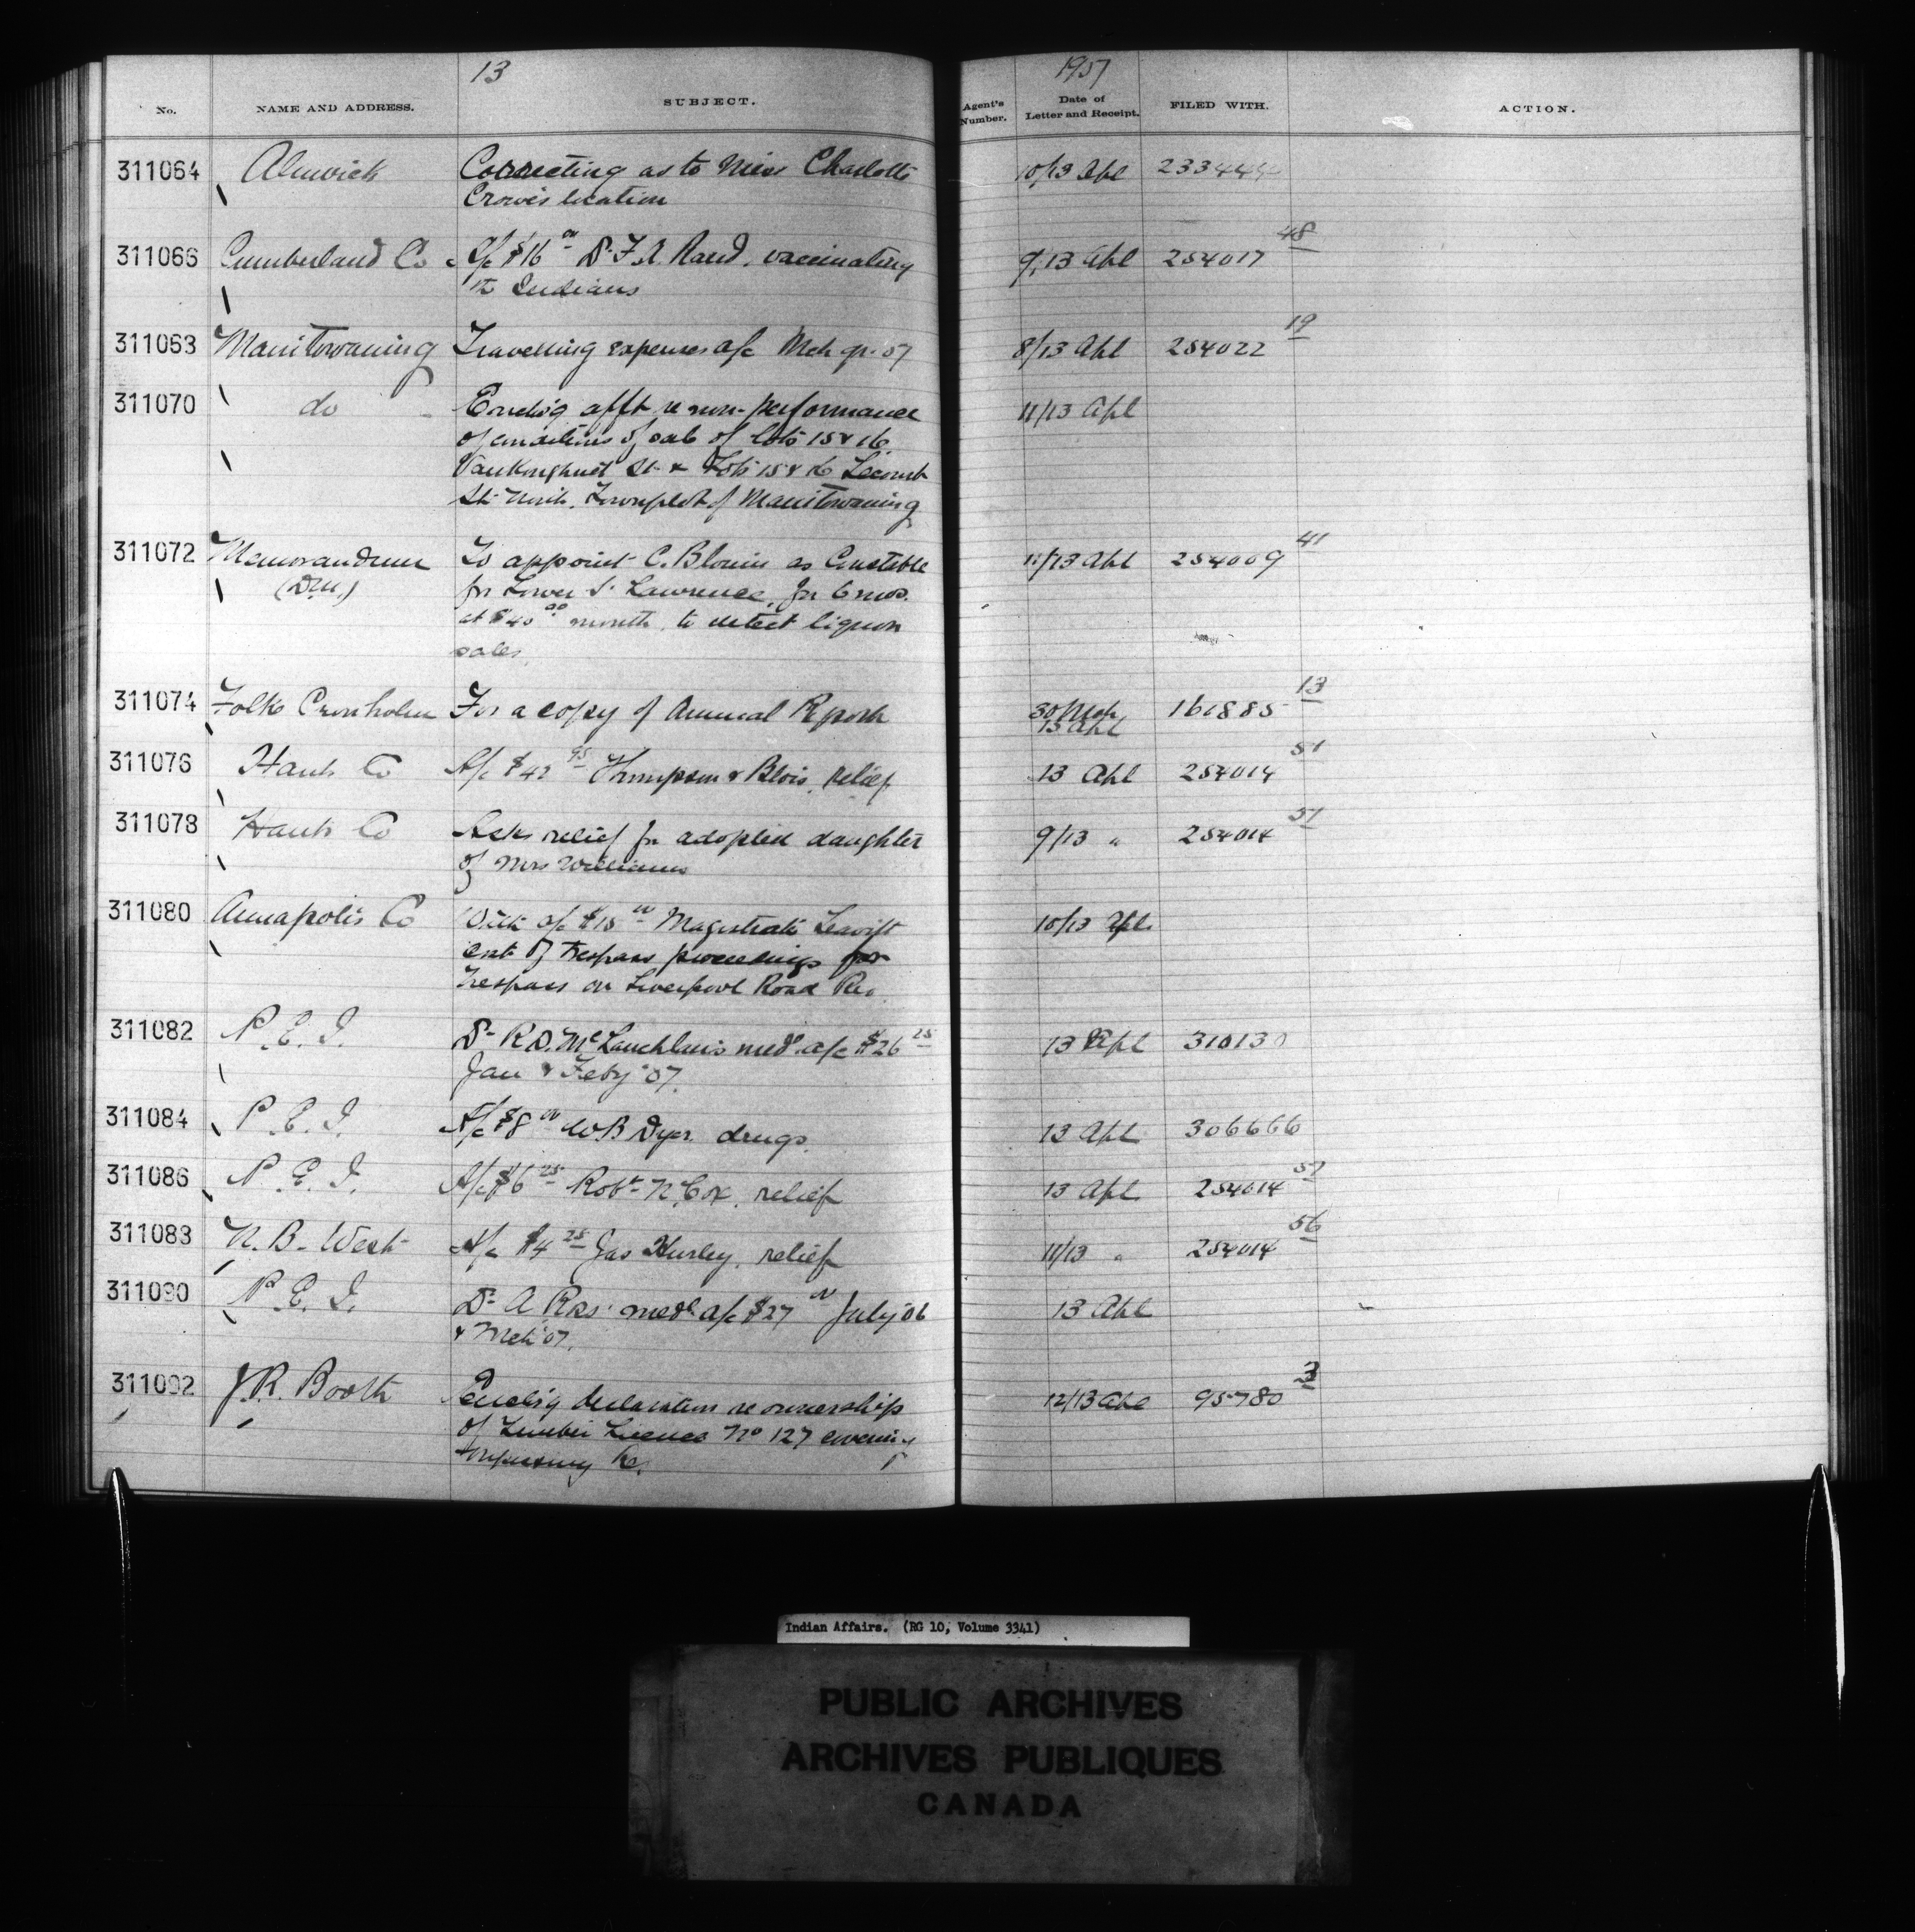 13
1907
No.
NAME AND ADDRESS.
SUBJECT.
Agent's Number.
Date of Letter and Receipt.
FILED WITH.
ACTION.
311064 Alnwick Correcting as to Miss Charlotte 10/13 Apl 233444
Crowe's location
311066 Cumberland Co A/c $16 00 Dr F. A. Rand, vaccinating 9/13 Apl 254017 48
Indians
311068 Manitowaning Travelling expenses a/c Mch qr. 07 8/13 Apl 254022 19
311070 do Enclo'g afft re non-performance 11/13 Apl
of conditions of sale of lots 15 & 16
Vankoughnet St & Lots 15 & 16
St. North, Townplot of Manitowaning
311072 Memorandum To appoint C. Blouin as Constable 11/13 Apl 254009 41
for Lower St Lawrence, for 6 mos.
at $40 00 month, to detect liquor
sales
311074 Folke Cronholm For a copy of Annual Report 30 Mch 161885 13
13 Apl
311076 Hants Co A/c $42 95 Thompson & Blois, relief 13 Apl 254014 51
311078 Hants Co Asks relief for adopted daughter 9/13 " 254014 51
of Mrs Williams
311080 Annapolis Co With a/c $15 00 Magistrate Leavitt 10/13 Apl
cost of trespass proceedings for
trespass on Liverpool Road Re.
311082 P. E. I. Dr R. D. McLauchlan's medl a/c $26 25 13 Apl 310130
Jan & Feby '07.
311084 P. E. I. A/c $8 00 W B Dyer drugs. 13 Apl 306666
311086 P. E. I. A/c $6 25 Robt N. Cox, relief 13 Apl 254014 57
311088 N. B. West A/c $4 25 Jas Hurley, relief 11/13 " 254014 56
311090 P. E. I. Dr A Ross medl a/c $27 00 July 06 13 Apl
& Mch 07.
311092 J. R. Booth Enclo'g declaration re ownership 12/13 Apl 95780 3
of Timber License No 127 covering
Re.
Indian Affairs. (RG 10, Volume 3341)
PUBLIC ARCHIVES
ARCHIVES PUBLIQUES
CANADA